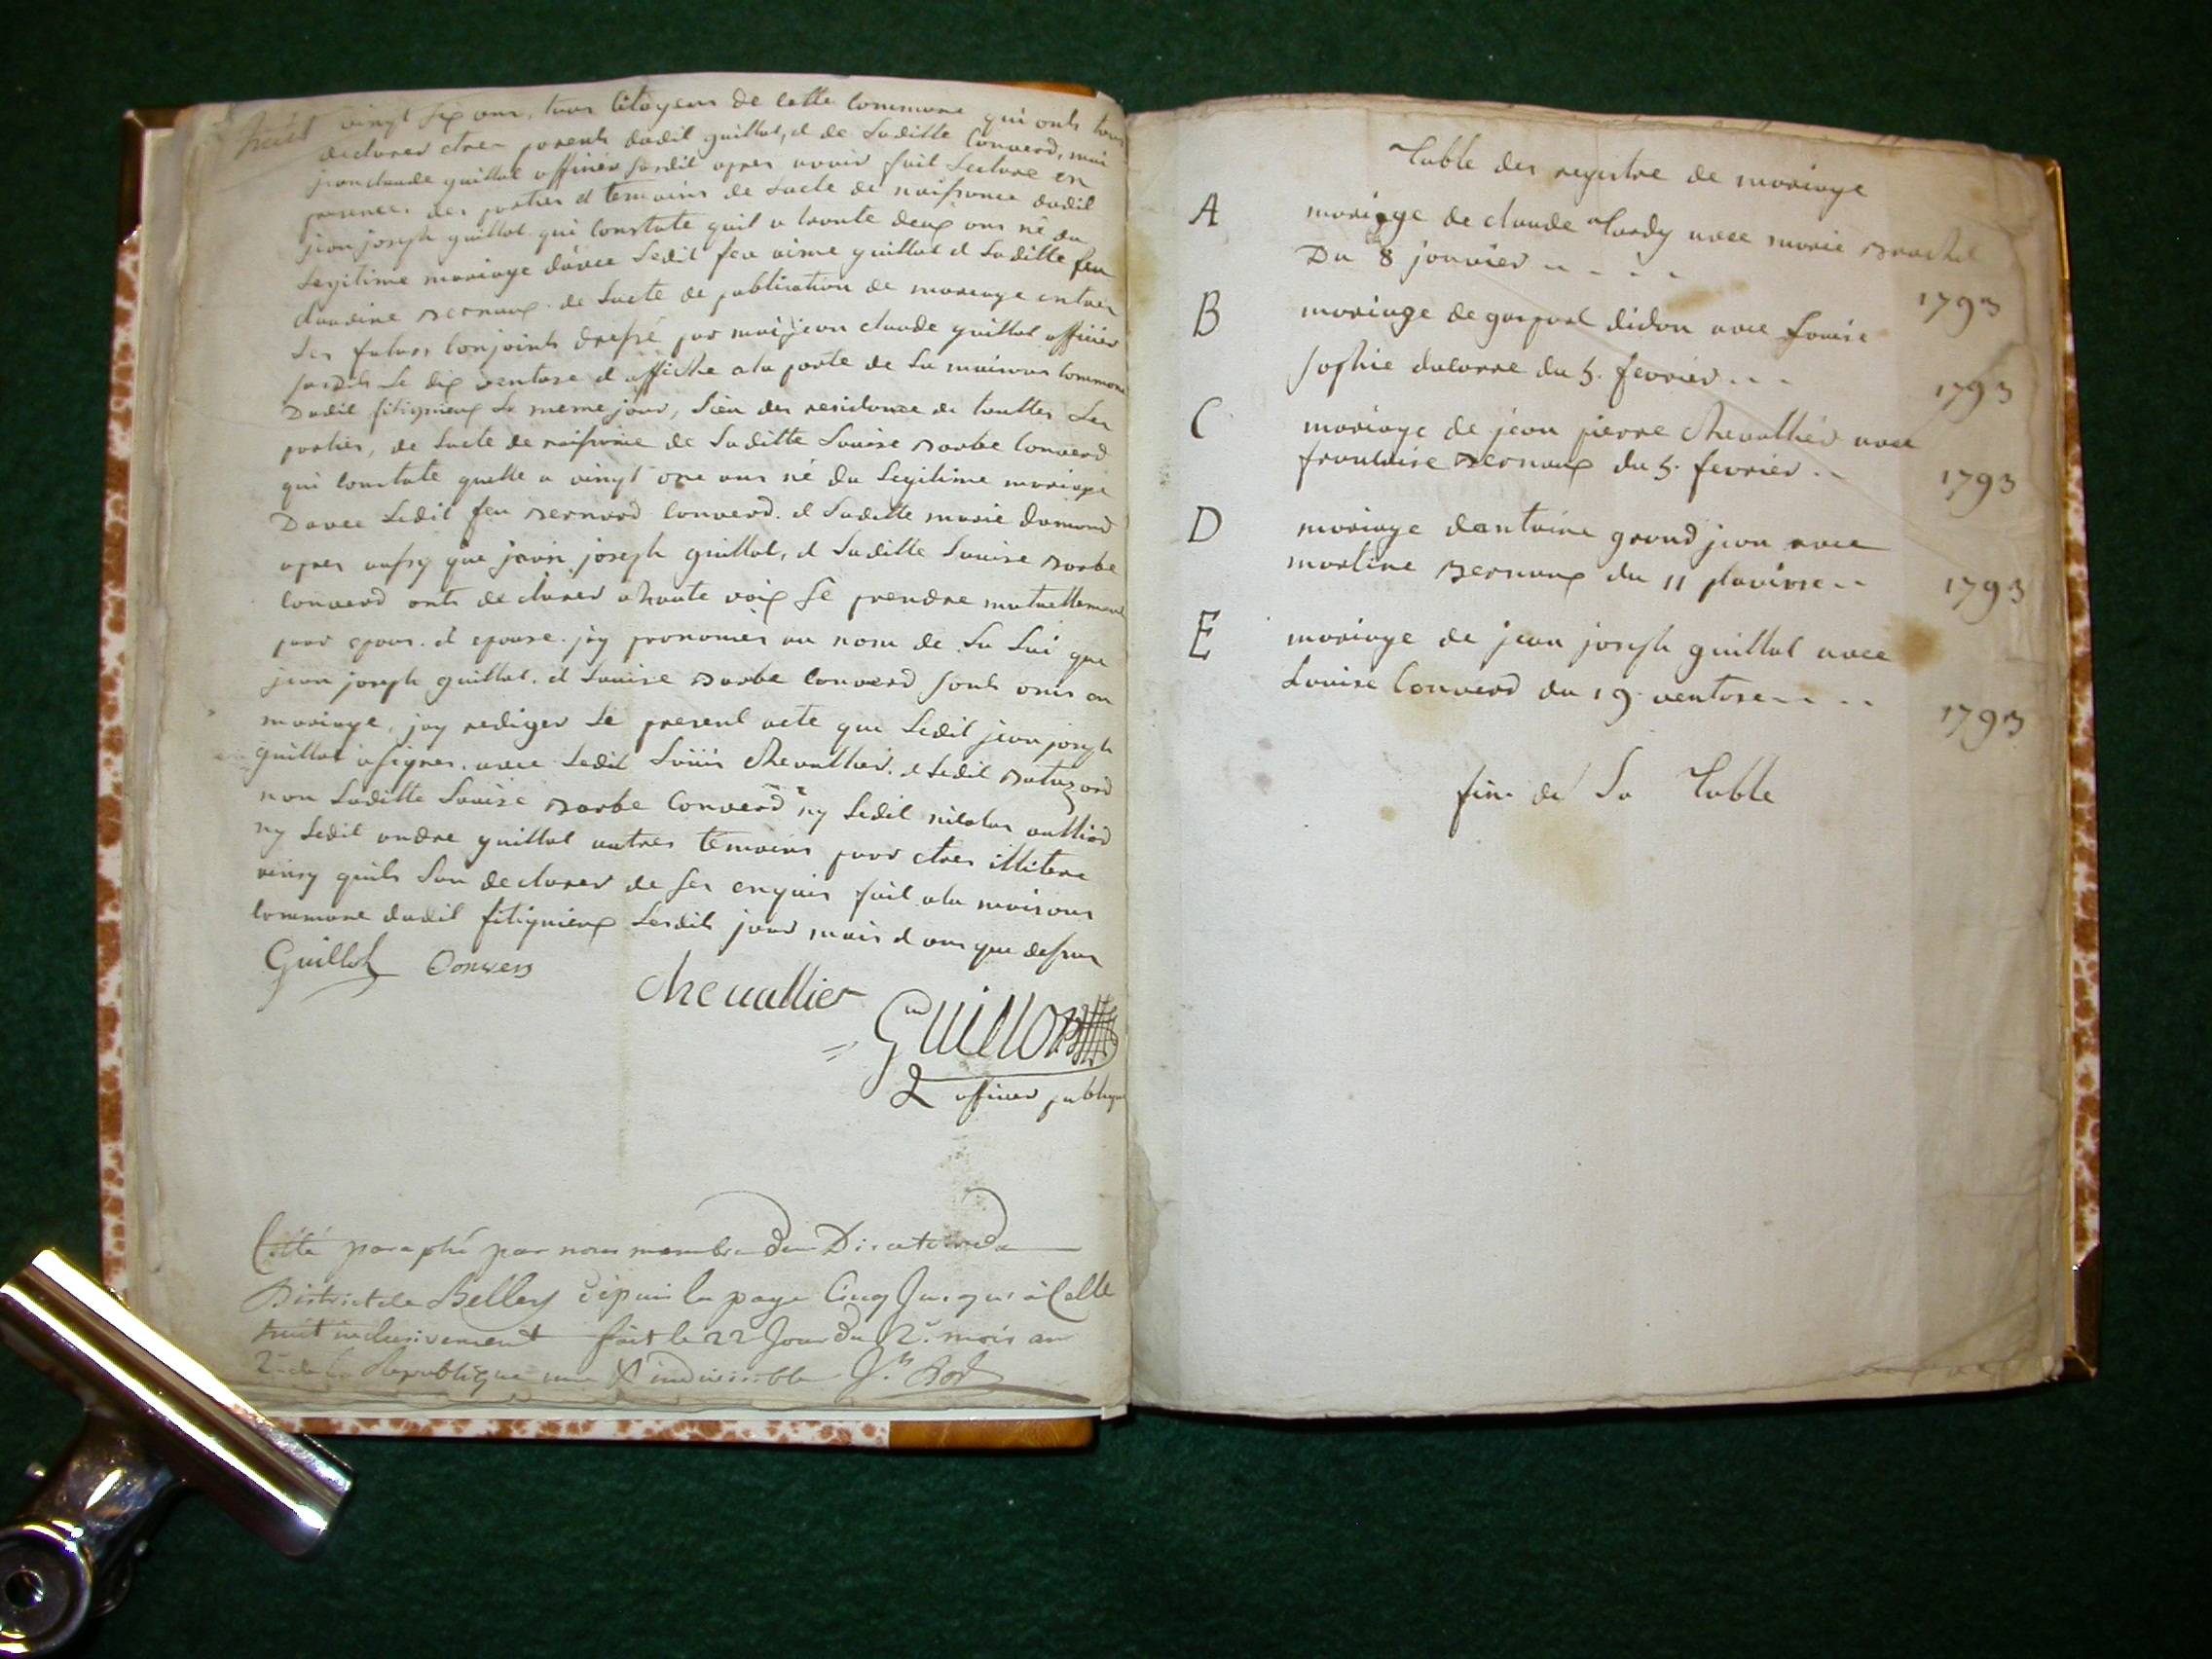 huit
vingt six ans, tous Citoyens de cette Commune qui onts tous
declarer etre parents dudit guillot, et de Laditte Converd, moi
jean claude guillot officier susdit apres avoir fait Lecture en
presence des parties et temoins de Lacte de naissance dudit
jean joseph guillot qui Constate quil a trante deux ans né du
Legitime mariage davec Ledit feu aime guillot et Laditte feu
claudine Bernaux de Lacte de publication de mariage entre
Les futurs Conjoints dressé par moi jean claude guillot officier
susdits Le dix ventose et affiche a la porte de La maison Commune
Dudit fitignieux Le meme jour, Lieu des residance de touttes Les
parties, de Lacte de naissance de Laditte Louise Barbe Converd
qui Constate quelle a vingt one ans né du Legitime mariage
Davec Ledit feu Bernard Converd et Laditte marie dumond
apres aussy que jean joseph guillot, et Laditte Louise Barbe
Converd onts declarer a haute voix Se prendre mutuellement
pour epoux et epouse jay prononcer au nom de La Loi que
jean joseph guillot et Louise Barbe Converd sonts onis en
mariage, jay rediger Le present acte que Ledit jean joseph
guillot a signer avec Ledit Louis Chevallier et Ledit
non Laditte Louise Barbe Converd ny Ledit nicolas
ny Ledit andre guillot autres temoins pour etres illitere
ainsy quils Lon declarer de Ses enquis fait a la maison
Commune dudit fitignieux Lesdits jour mois et an que dessus
Guillot Convers
chevallier
Guillot
officier publique
Cotté paraphé par nous membre du Directoire du
District de Belley depuis la page Cinq Jusqu'à Celle
huit inclusivement fait le 22 Jour du 2e mois an
2e de la Republique une & indivisible
Table des registre de mariage
A mariage de claude Tardy avec marie Brachet
Du 8 janvier - - - - - 1793
B mariage de gaspard didon avec Louise
sophie dalorre du 5. fevrier - - - 1793
C mariage de jean pierre Chevallier avec
francoise Bernaux du 5. fevrier - - 1793
D mariage dantoine grand jean avec
martine Bernaux du 11 pluviose - - 1793
E mariage de jean joseph guillot avec
Louise Converd du 19 ventose - - - - 1793
fin de La Table